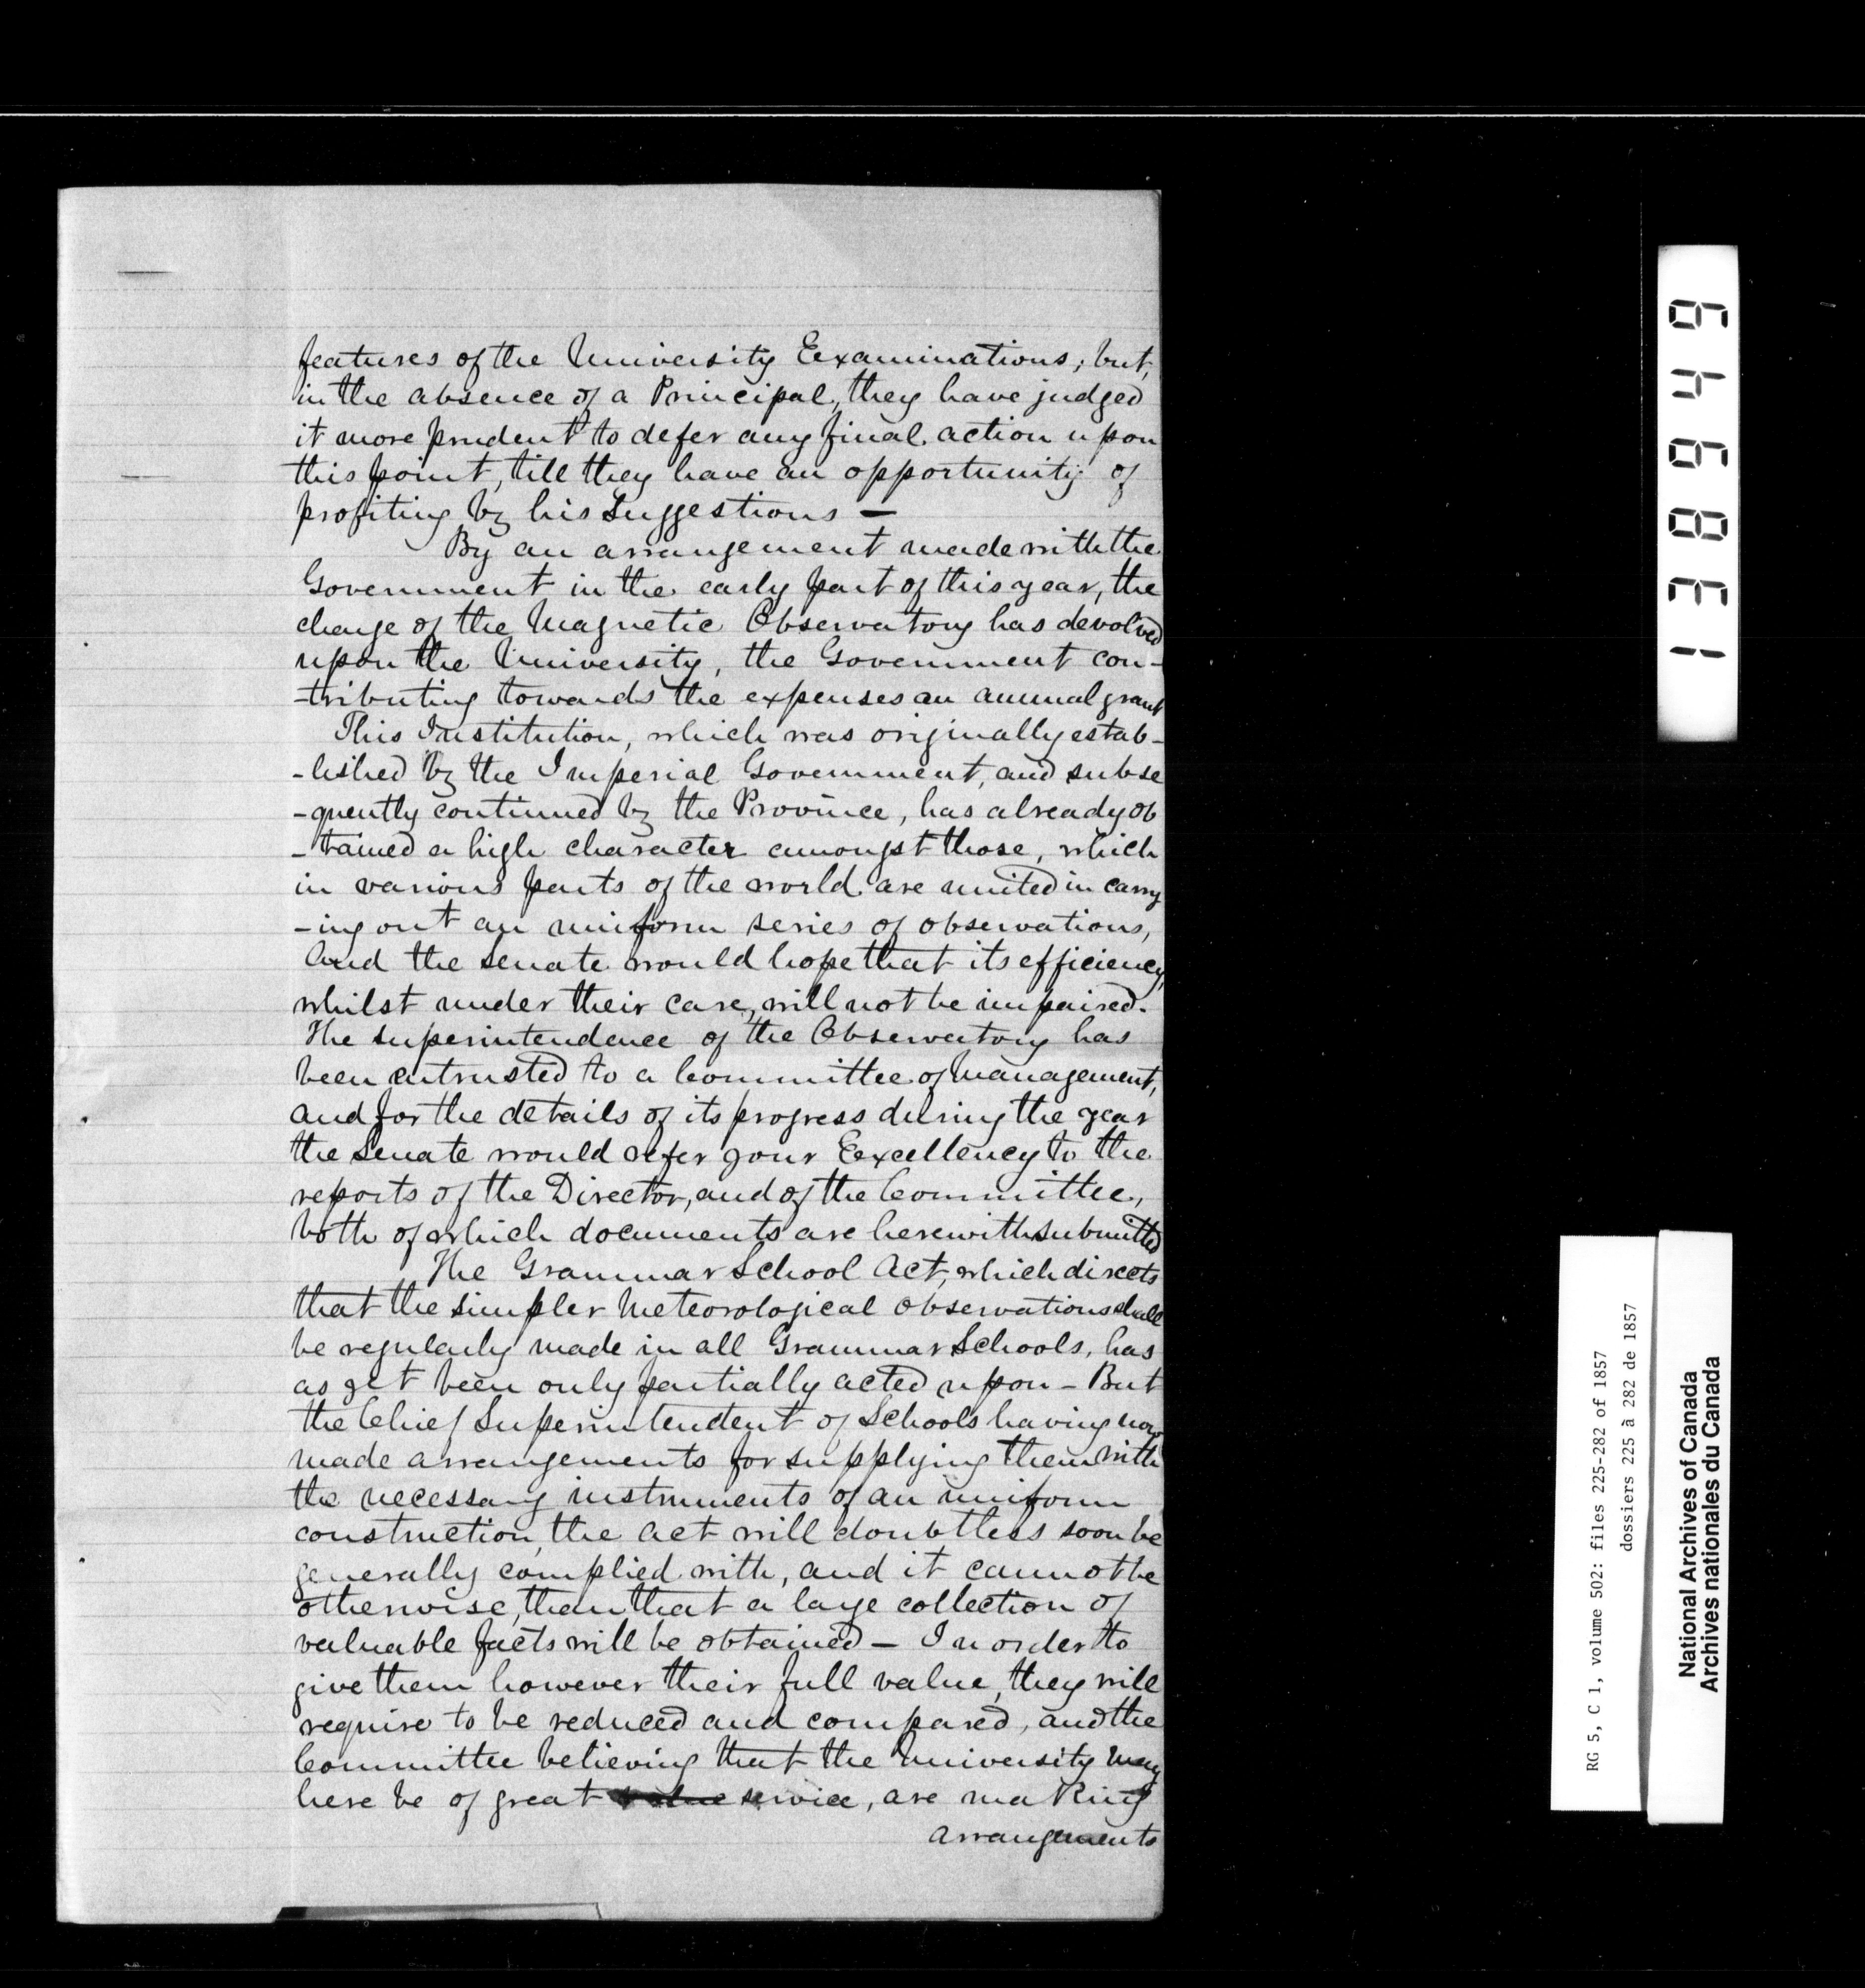 features of the University Examinations; but,
in the absence of a Principal, they have judged
it more prudent to defer any final action upon
this point, till they have an opportunity of
profiting by his Suggestions —
By an arrangement made with the
Government in the early part of this year, the
charge of the Magnetic Observatory has devolved
upon the University, the Government con-
-tributing towards the expenses an annual grant
This Institution, which was originally estab-
-lished by the Imperial Government, and subse
-quently continued by the Province, has already ob
-tained a high character amongst those, which
in various parts of the world are united in carry
-ing out an uniform series of observations,
And the Senate would hope that its efficiency,
whilst under their care, will not be impaired.
The superintendence of the Observatory has
been entrusted to a Committee of Management,
and for the details of its progress during the year
the Senate would refer your Excellency to the
reports of the Director, and of the Committee,
both of which documents are herewith submitted
The Grammar School Act, which directs
that the simpler Meteorological Observations shall
be regularly made in all Grammar Schools, has
as yet been only partially acted upon – But
the Chief Superintendent of Schools having now
made arrangements for supplying them with
the necessary instruments of an uniform
construction, the act will doubtless soon be
generally complied with, and it cannot be
otherwise, than that a large collection of
valuable facts will be obtained – In order to
give them however their full value, they will
require to be reduced and compared, and the
Committee believing that the University may
here be of great service, are making
arrangements
138949
RG 5, C 1, volume 502: files 225-282 of 1857
dossiers 225 à 282 de 1857
National Archives of Canada
Archives nationales du Canada